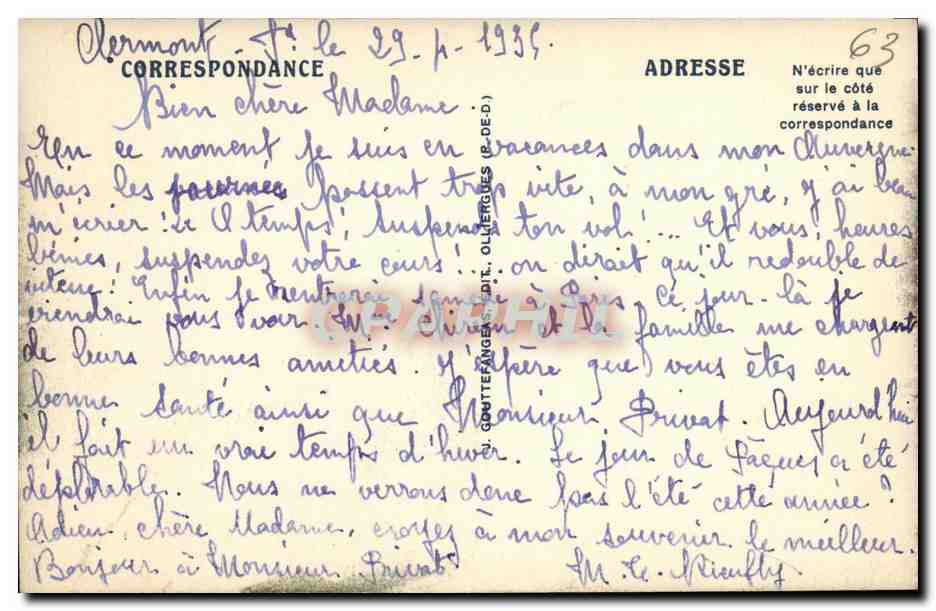 Clermont-Fd le 29-4-1935.
63
CORRESPONDANCE
ADRESSE
N'écrire que
sur le côté
réservé à la
correspondance
Bien chère Madame
En ce moment je suis en vacances dans mon Auvergne.
Mais les journées passent trop vite, à mon gré, j'ai beau
m'écrier : "O temps, suspends ton vol ! ... Et vous, heures
bénies, suspendez votre cours ! ... on dirait qu'il redouble de
vitesse ! Enfin je rentrerai samedi à Paris. Ce jour-là je
viendrai vous voir. M. et la famille me chargent
de leurs bonnes amitiés. J'espère que vous êtes en
bonne santé ainsi que Monsieur Privat. Aujourd'hui
il fait un vrai temps d'hiver. Le jour de Pâques a été
déplorable. Nous ne verrons donc pas l'été cette année ?
Adieu, chère Madame, croyez à mon souvenir le meilleur.
Bonjour à Monsieur Privat
J. GOUTTEFANGEAS, ÉDIT., OLLIERGUES (P.-DE-D.)
CPARPHIL